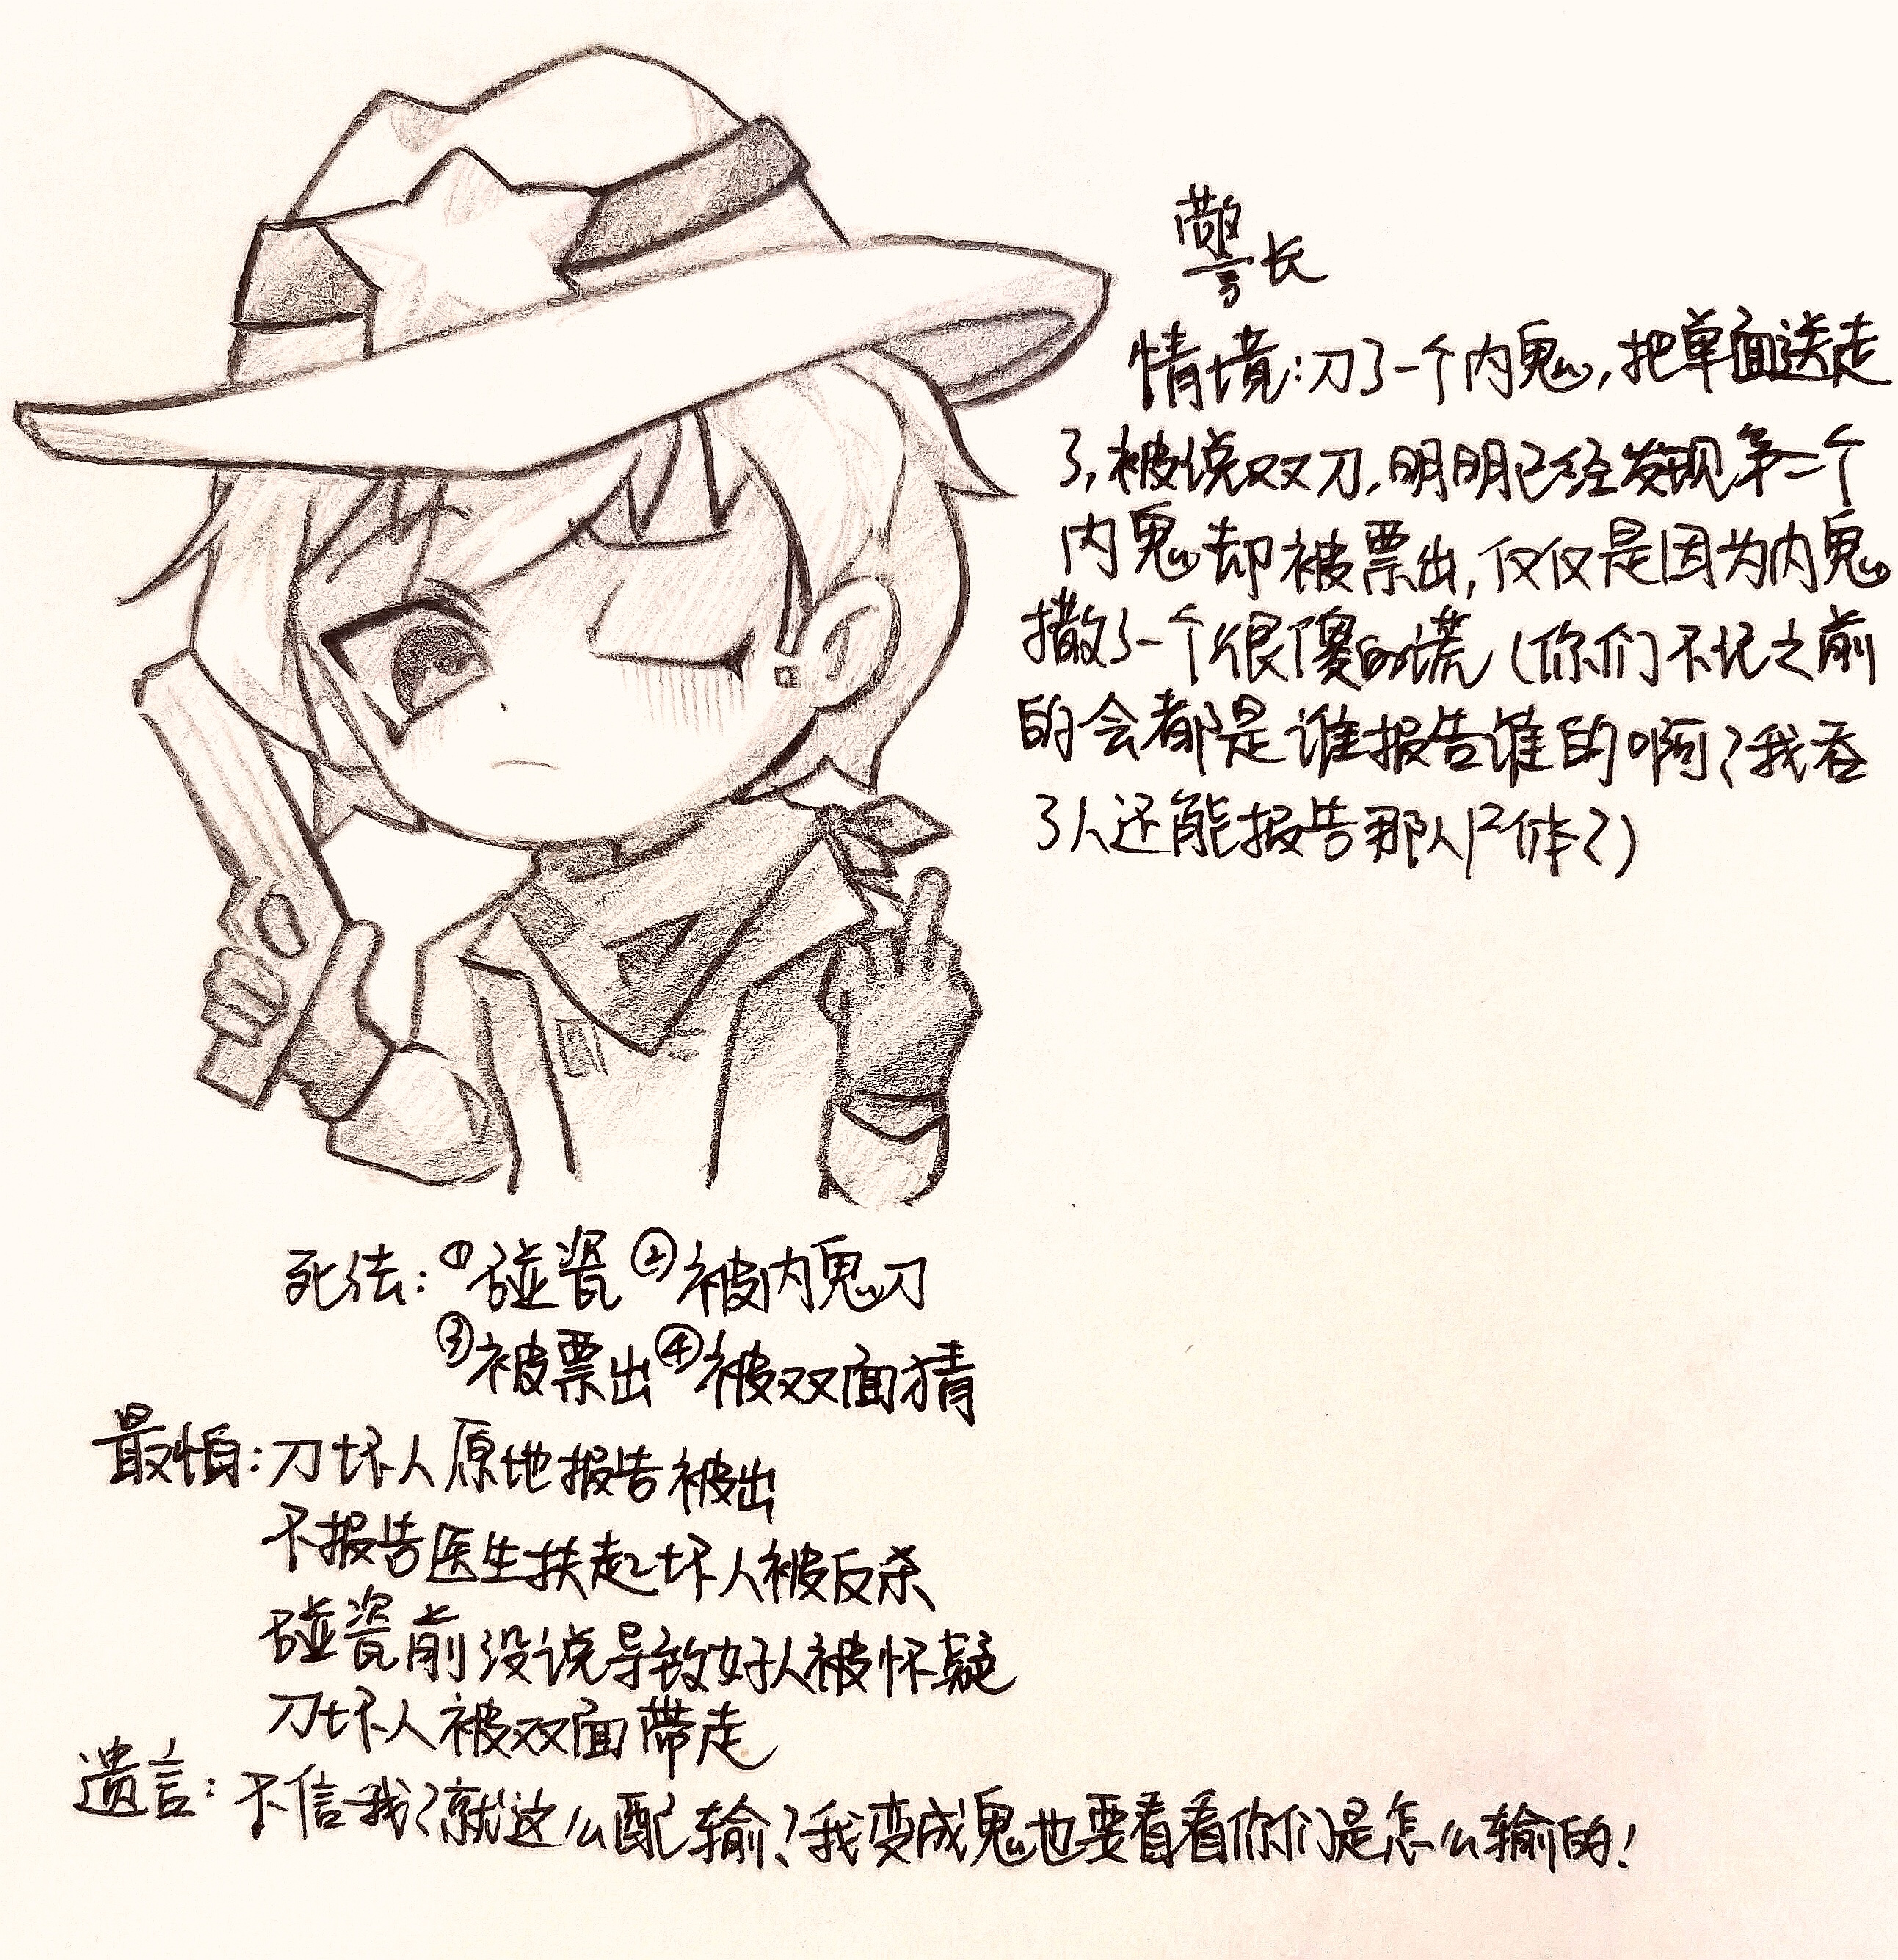 警长
情境:刀了一个内鬼,把单面送走
了,被说双刀,明明已经发现第二个
内鬼却被票出,仅仅是因为内鬼
撒了一个很傻的谎(你们不记之前
的会都是谁报告谁的啊?我吞
了人还能报告那人尸体?)
死法:①碰瓷②被内鬼刀
③被票出④被双面猜
最怕:刀坏人原地报告被出
不报告医生扶起坏人被反杀
碰瓷前没说导致好人被怀疑
刀坏人被双面带走
遗言:不信我?就这么配输?我变成鬼也要看看你们是怎么输的!